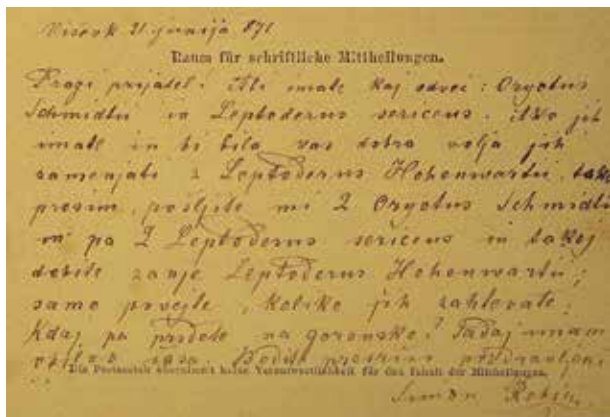 Visoče 21 junija 871
Raum für schriftliche Mittheilungen.
Dragi prijatel! Ali imate kaj odveč: Oryotus
Schmidtii in Leptoderus sericeus. Ako jih
imate in bi bila vas dobra volja jih
zamenjati z Leptoderus Hohenwartii, tako
prosim, pošljite mi 2 Oryotus Schmidtii
in pa 2 Leptoderus sericeus in takoj
dobite zanje Leptoderus Hohenwartii;
samo povejte, koliko jih zahtevate.
Kdaj pa pridete na gorensko? Sadaj imam
časa. Bodite prosrčno pozdravljeni
Die Postanstalt übernimmt keine Verantwortlichkeit für den Inhalt der Mittheilungen.
Simon Robič